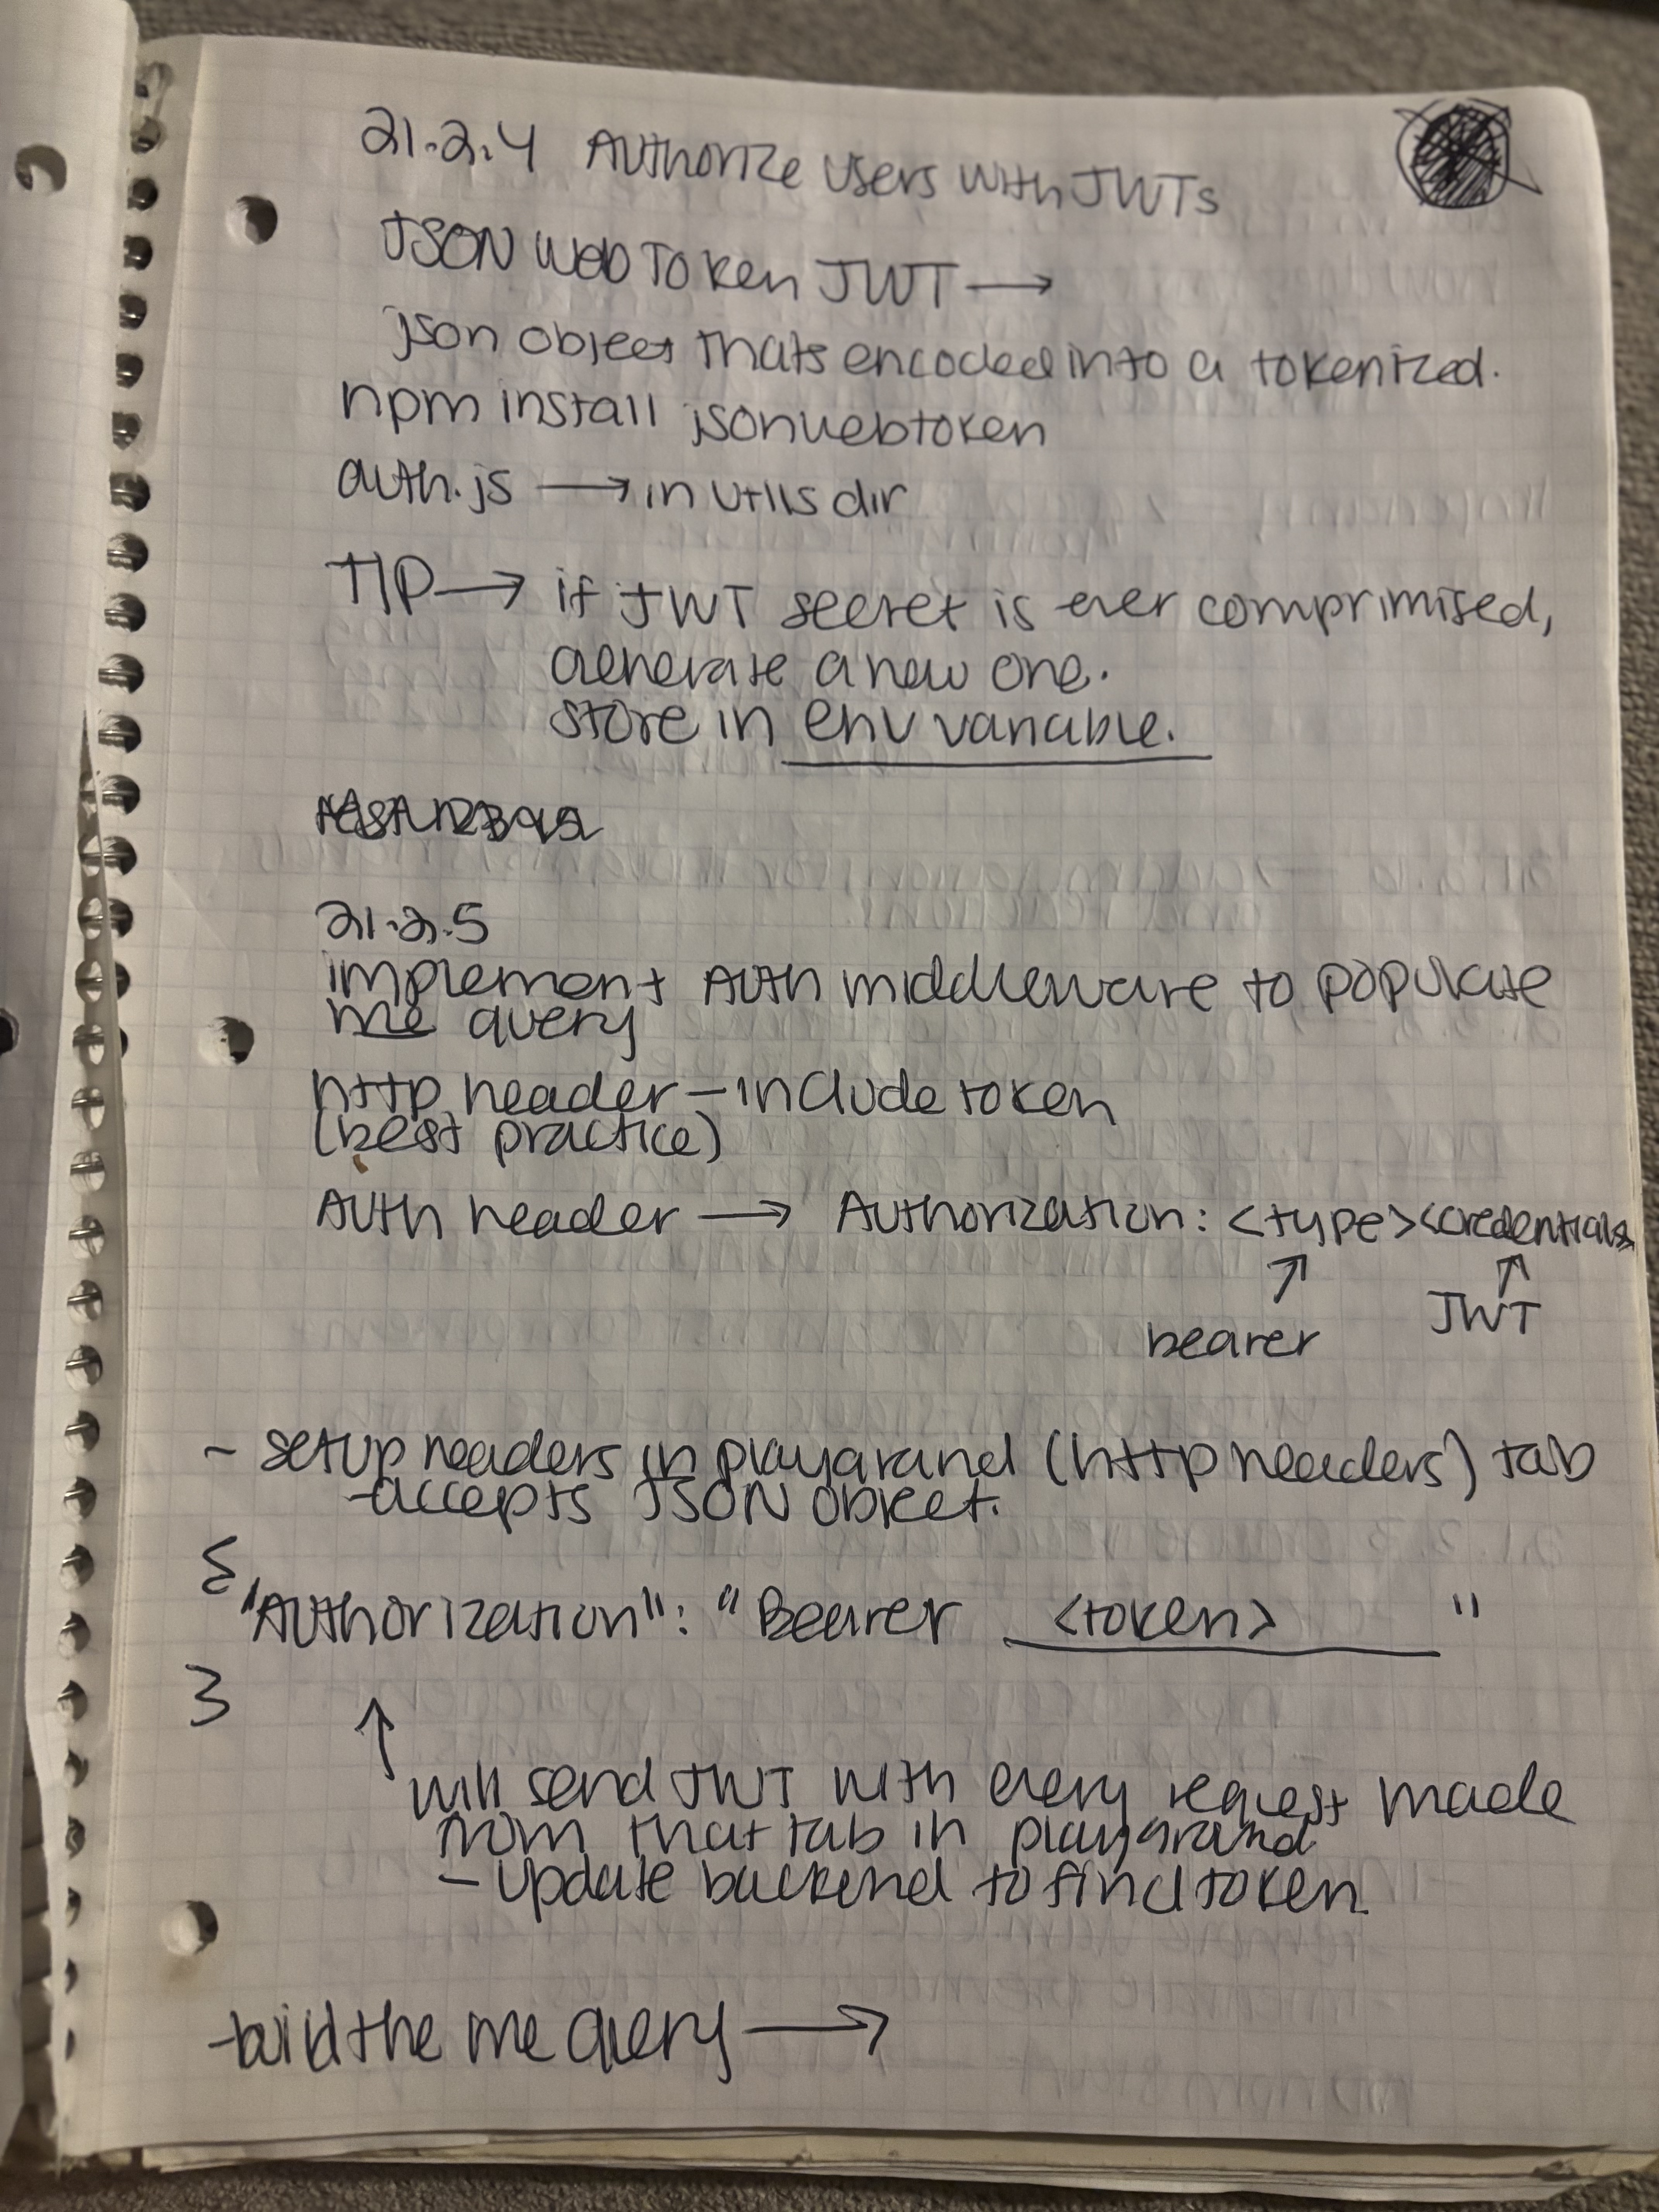 21.2.4 Authorize users with JWTs
JSON Web Token JWT →
json object thats encoded into a tokenized.
npm install jsonwebtoken
auth.js → in utils dir
TIP → if JWT secret is ever comprimised,
generate a new one.
store in env variable.
21.2.5
implement Auth middleware to populate
me query
http header - include token
(best practice)
Auth header → Authorization: <type><credentials>
↑ ↑
bearer JWT
~ setup headers in playground (http headers) tab
-accepts JSON object.
{
"Authorization": "Bearer <token> "
}
↑
will send JWT with every request made
from that tab in playground
- update backend to find token
-build the me query →